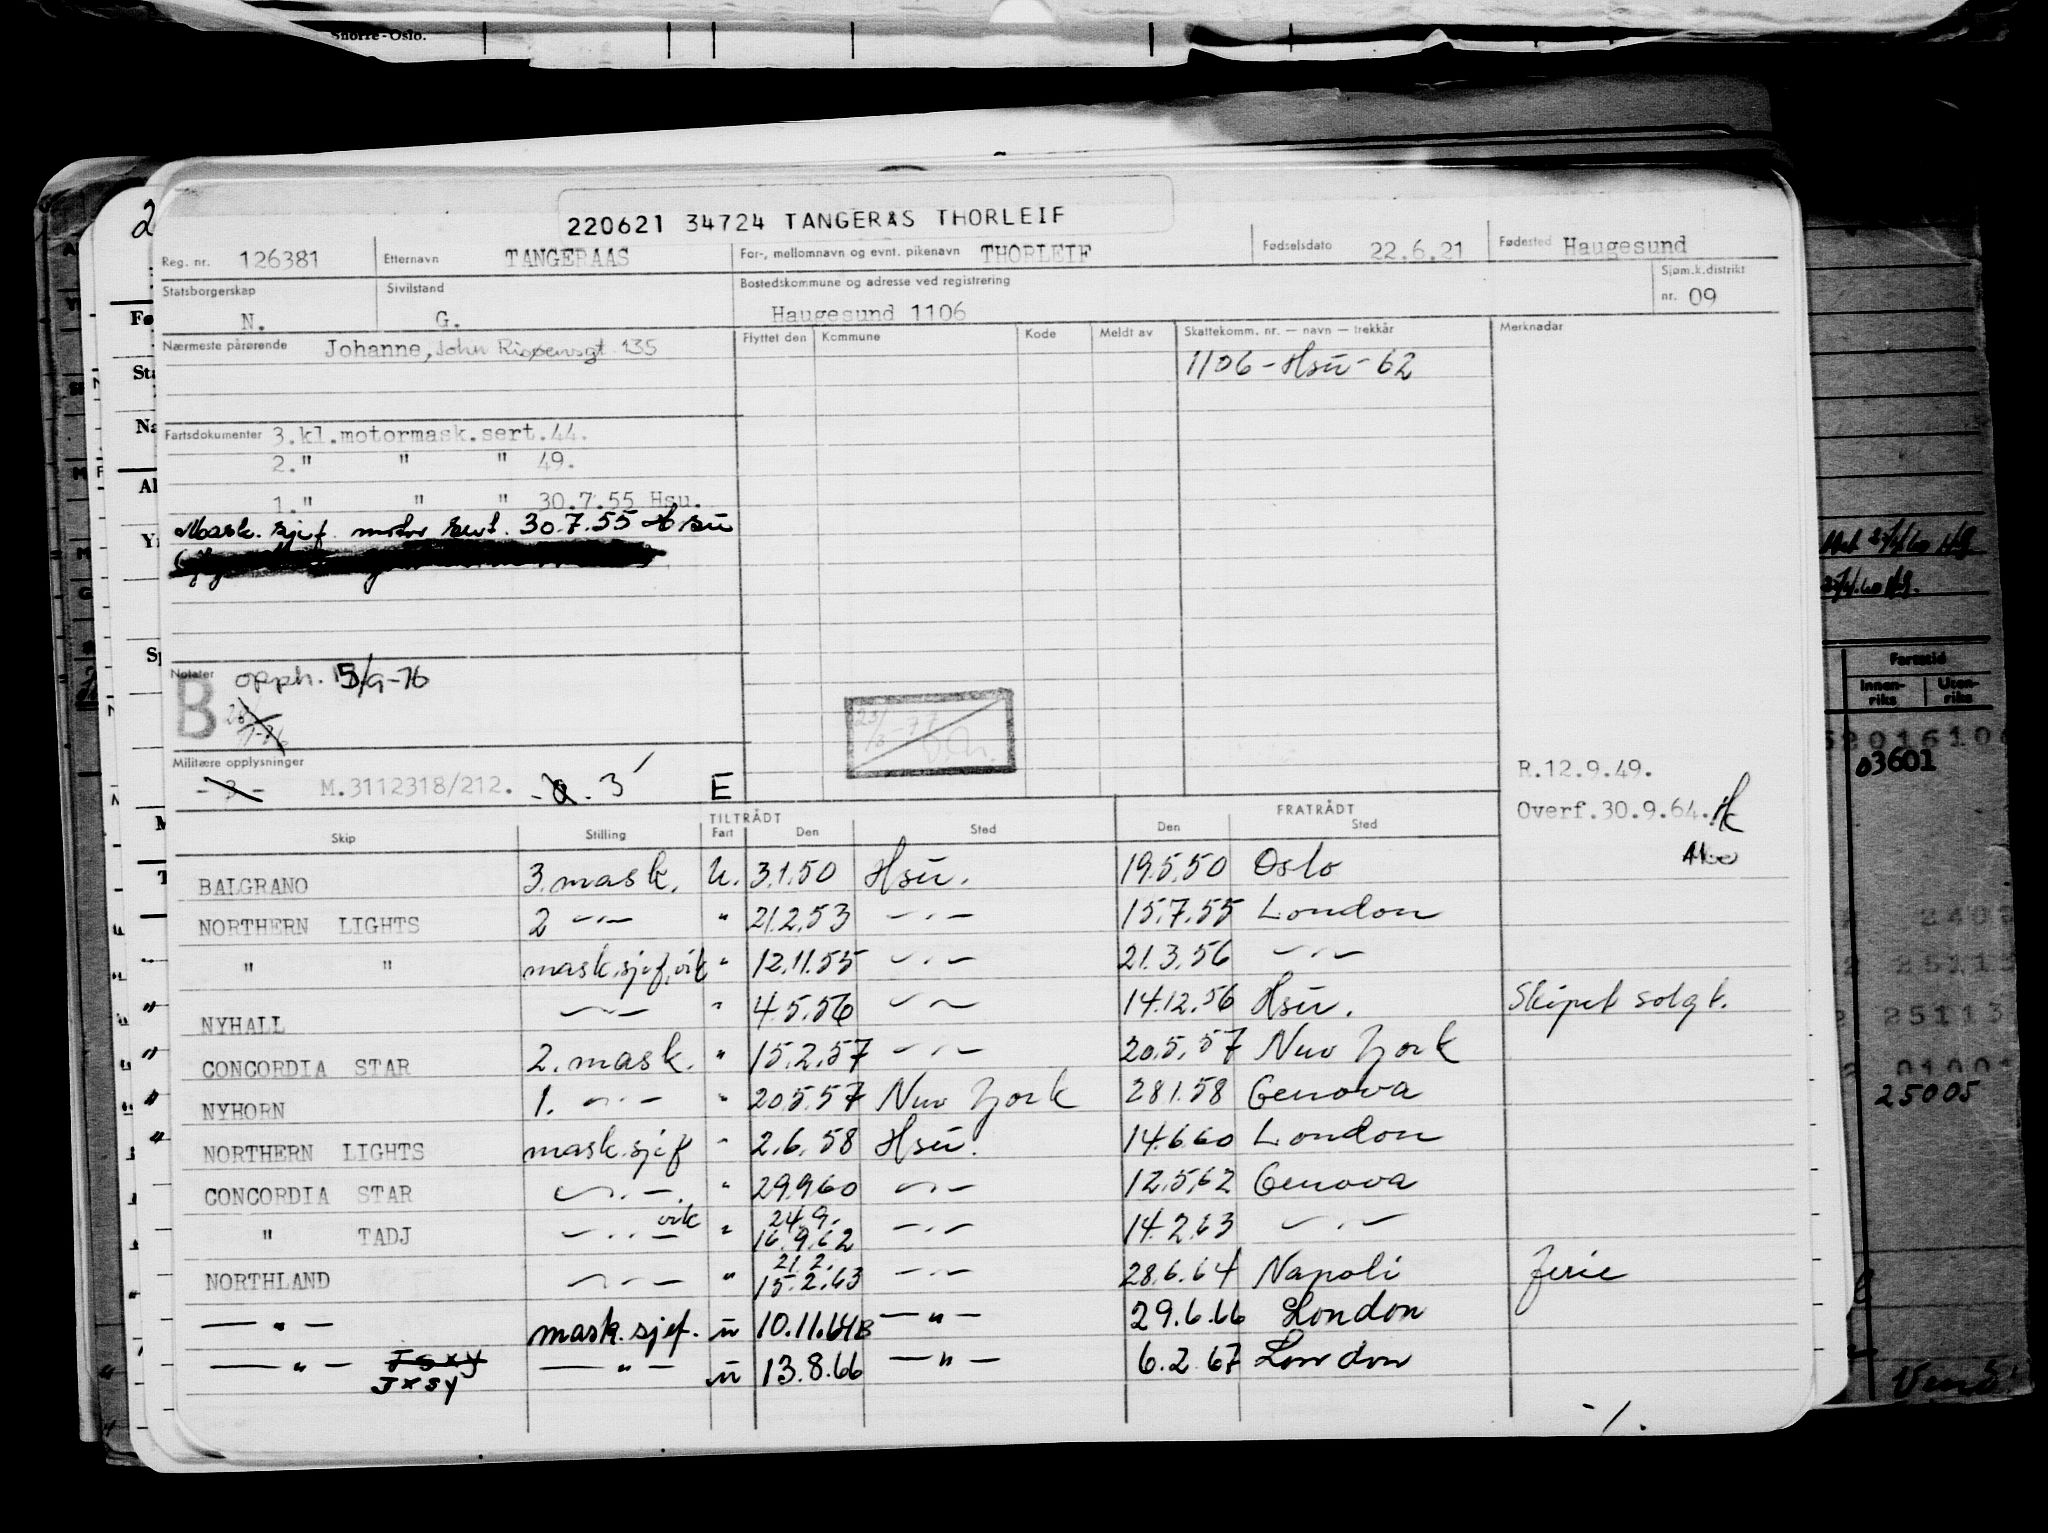 Snorre-Oslo.
220621 34724 TANGERAS THORLEIF
Reg. nr. 126381 Etternavn TANGERAAS For-, mellomnavn og evnt. pikenavn THORLEIF Fødselsdato 22.6.21 Fødested Haugesund
Statsborgerskap N. Sivilstand G. Bostedskommune og adresse ved registrering Haugesund 1106 Sjøm.k.distrikt nr. 09
Nærmeste pårørende Johanne, John 135 Flyttet den Kommune Kode Meldt av Skattekomm. nr. — navn — trekkår Merknadar
1106 - Hsu - 62
Fartsdokumenter 3.kl.motormask.sert.44.
2." " " 49.
1." " " 30.7.55 Hsu.
Mask. sjef. motor sert. 30.7.55 Hsu
Notater B opph. 15/9-76
Militære opplysninger
- 3 - M.3112318/212. 3 E
R.12.9.49.
Overf.30.9.64.
Skip Stilling TILTRÅDT Fart Den Sted FRATRÅDT Den Sted
BALGRANO 3. mask. U. 3.1.50 Hsu. 19.5.50 Oslo
NORTHERN LIGHTS 2 -"- " 21.2.53 -"- 15.7.55 London
" " mask.sjef.vik " 12.11.55 -"- 21.3.56 -"-
" NYHALL -"- " 4.5.56 -"- 14.12.56 Hsu. Skipet solgt.
" CONCORDIA STAR 2. mask. " 15.2.57 -"- 20.5.57 New York
" NYHORN 1. -"- " 20.5.57 New York 28.1.58 Genova
" NORTHERN LIGHTS mask.sjef " 2.6.58 Hsu. 14.6.60 London
CONCORDIA STAR -"- " 29.9.60 -"- 12.5.62 Genova
" TADJ -"- vik " 24.9. 16.9.62 -"- 14.2.63 -"-
NORTHLAND -"- " 21.2. 15.2.63 -"- 28.6.64 Napoli ferie
-"- mask.sjef. u 10.11.64B -"- 29.6.66 London
-"- JSXY JXSY -"- u 13.8.66 -"- 6.2.67 London
-/.
Fartstid
Innen-riks Uten-riks
03601
25005